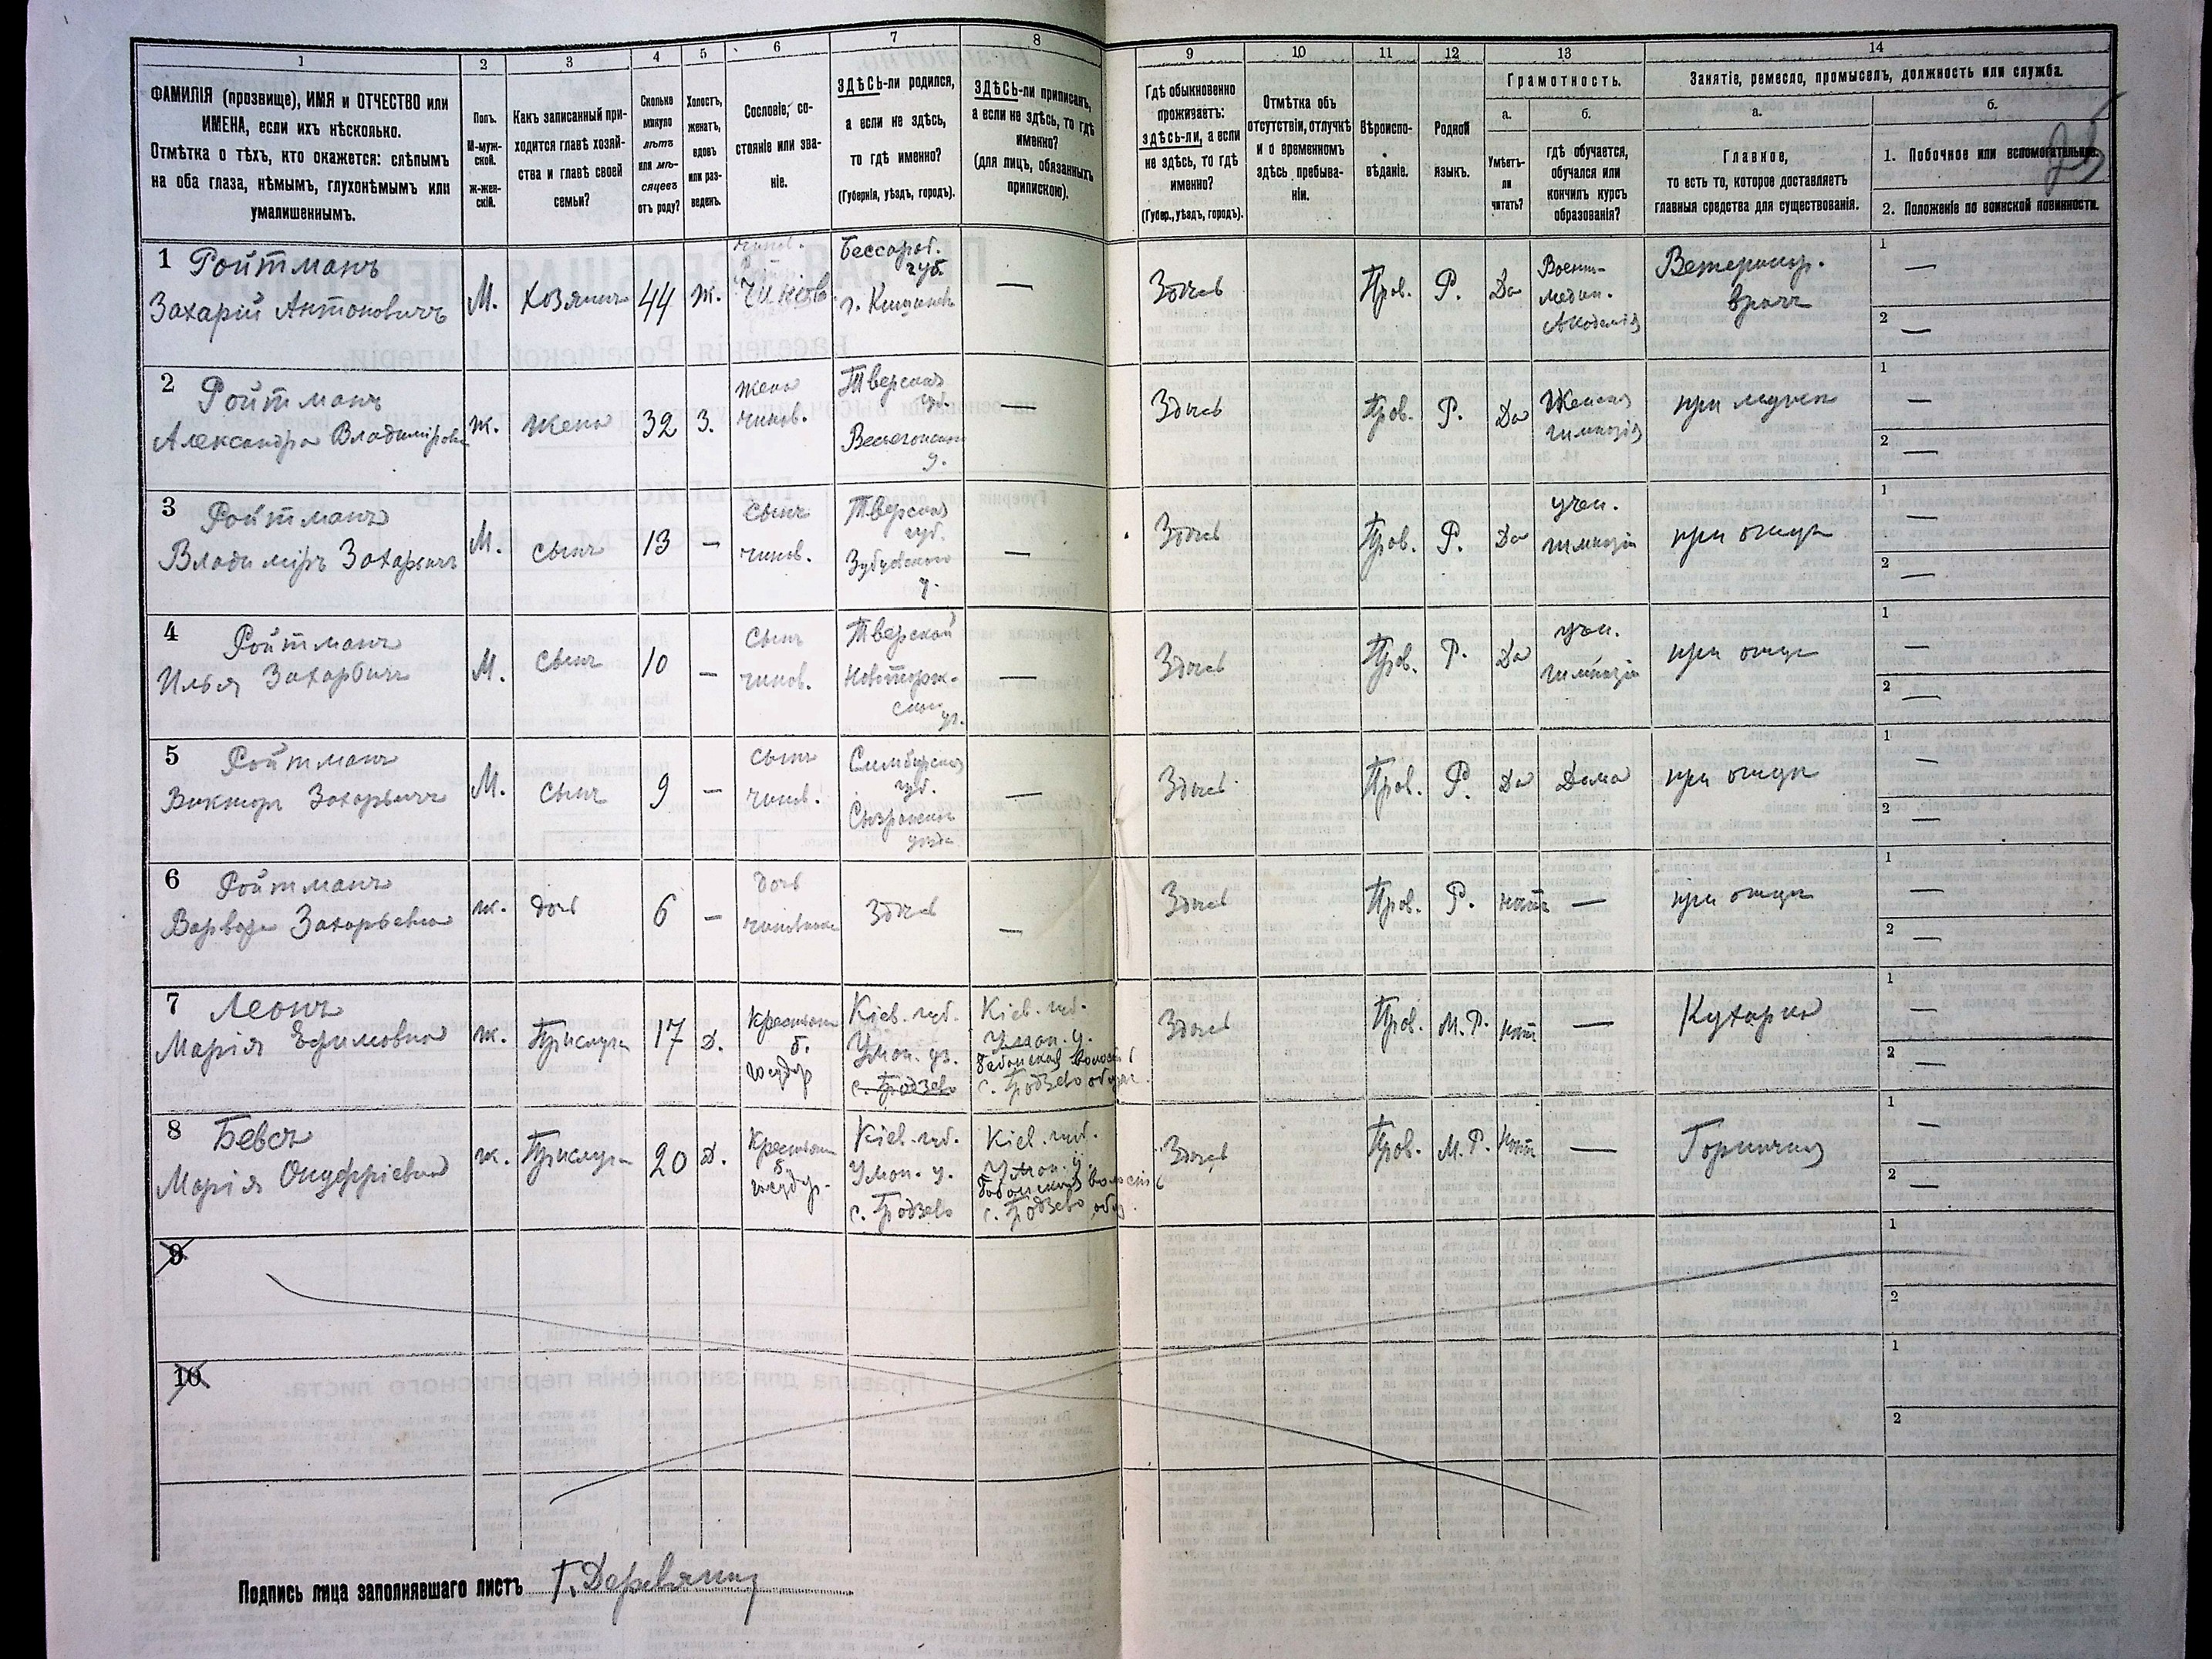 1
2
3
4
5
6
7
8
9
10
11
12
13
14
ФАМИЛІЯ (прозвище), ИМЯ и ОТЧЕСТВО или
ИМЕНА, если ихъ нѣсколько.
Отмѣтка о тѣхъ, кто окажется: слѣпымъ
на оба глаза, нѣмымъ, глухонѣмымъ или
умалишеннымъ.
Полъ.
М-муж-
ской.
ж-жен-
скій.
Какъ записанный при-
ходится главѣ хозяй-
ства и главѣ своей
семьи?
Сколько
минуло
лѣтъ
или мѣ-
сяцевъ
отъ роду?
Холостъ,
женатъ,
вдовъ
или раз-
веденъ.
Сословіе, со-
стояніе или зва-
ніе.
ЗДѢСЬ-ли родился,
а если не здѣсь,
то гдѣ именно?
(Губернія, уѣздъ, городъ).
ЗДѢСЬ-ли приписанъ,
а если не здѣсь, то гдѣ
именно?
(для лицъ, обязанныхъ
припискою).
Гдѣ обыкновенно
проживаетъ:
здѣсь-ли, а если
не здѣсь, то гдѣ
именно?
(Губер., уѣздъ, городъ).
Отмѣтка объ
отсутствіи, отлучкѣ
и о временномъ
здѣсь пребыва-
ніи.
Вѣроиспо-
вѣданіе.
Родной
языкъ.
Грамотность.
а.
Умѣетъ-
ли
читать?
б.
гдѣ обучается,
обучался или
кончилъ курсъ
образованія?
Занятіе, ремесло, промыселъ, должность или служба.
а.
Главное,
то есть то, которое доставляетъ
главныя средства для существованія.
б.
1. Побочное или вспомогательное.
2. Положеніе по воинской повинности.
1 Ройтманъ
Захарій Антоновичъ
М.
Хозяинъ
44
ж.
Чинов.
Бессараб.
губ.
г. Кишиневъ
—
Здѣсь
Прав.
Р.
Да
Военн-
медиц.
Академія
Ветеринар.
врачъ
1 —
2 —
2 Ройтманъ
Александра Владиміровна
ж.
Жена
32
З.
жена
чинов.
Тверская
Весьегонскій
у.
—
Здѣсь
Прав.
Р.
Да
Женская
гимназія
при мужѣ
1 —
2 —
3 Ройтманъ
Владиміръ Захарьичъ
М.
сынъ
13
—
сынъ
чинов.
Тверская
губ.
Зубцовскаго
у.
—
Здѣсь
Прав.
Р.
Да
учен.
гимназіи
при отцѣ
1 —
2 —
4 Ройтманъ
Илья Захарьичъ
М.
сынъ
10
—
сынъ
чинов.
Тверской
Новоторж-
уѣ.
—
Здѣсь
Прав.
Р.
Да
учен.
гимназіи
при отцѣ
1 —
2 —
5 Ройтманъ
Викторъ Захарьичъ
М.
сынъ
9
—
сынъ
чинов.
Симбирская
губ.
Сызранскій
уѣздъ
—
Здѣсь
Прав.
Р.
Да
Дома
при отцѣ
1 —
2 —
6 Ройтманъ
Варвара Захарьевна
ж.
дочь
6
—
дочь
чиновника
Здѣсь
—
Здѣсь
Прав.
Р.
нѣтъ
—
при отцѣ
1 —
2 —
7 Леонъ
Марія Ефимовна
ж.
Прислуга
17
Д.
Крестьян.
б.
государ
Кіев. губ.
Уман. уѣ.
с. Гродзево
Кіев. губ.
Уман. у.
Бабанской волости
с. Гродзево общ.
Здѣсь
Прав.
М.Р.
нѣтъ
—
Кухарка
1 —
2 —
8 Бевсъ
Марія Онуфріевна
ж.
Прислуга
20
Д.
Крестьян.
б.
государ.
Кіев. губ.
Уман. у.
с. Гродзево
Кіев. губ.
Уман. у.
Бабанской волости
с. Гродзево общ.
Здѣсь
Прав.
М.Р.
нѣтъ
—
Горничная
1 —
2 —
9
1
2
10
1
2
Подпись лица заполнявшаго листъ